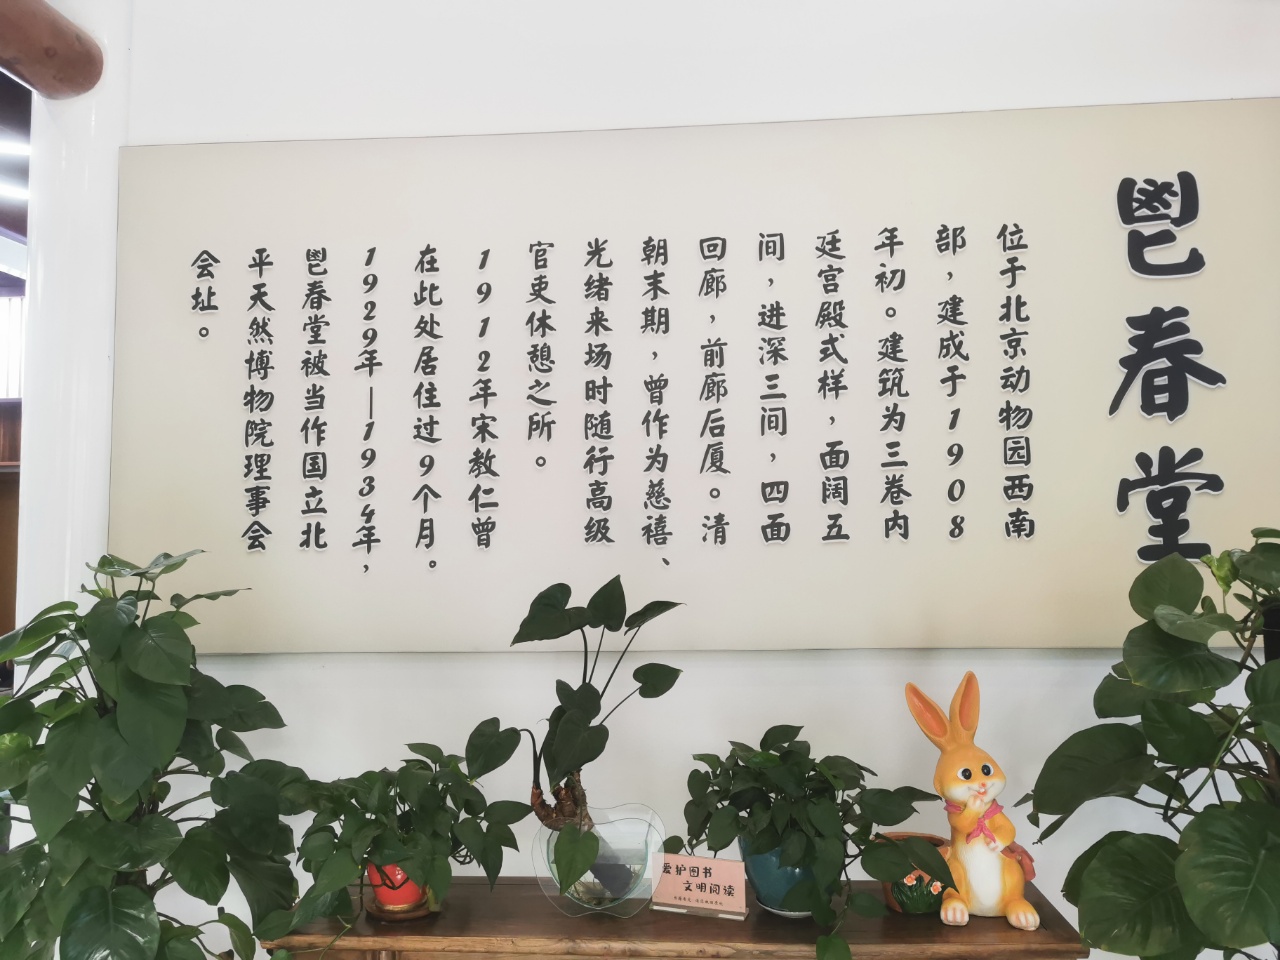 鬯春堂
位于北京动物园西南
部，建成于1908
年初。建筑为三卷内
廷宫殿式样，面阔五
间，进深三间，四面
回廊，前廊后厦。清
朝末期，曾作为慈禧、
光绪来场时随行高级
官吏休憩之所。
1912年宋教仁曾
在此处居住过9个月。
1929年—1934年，
鬯春堂被当作国立北
平天然博物院理事会
会址。
爱护图书
文明阅读